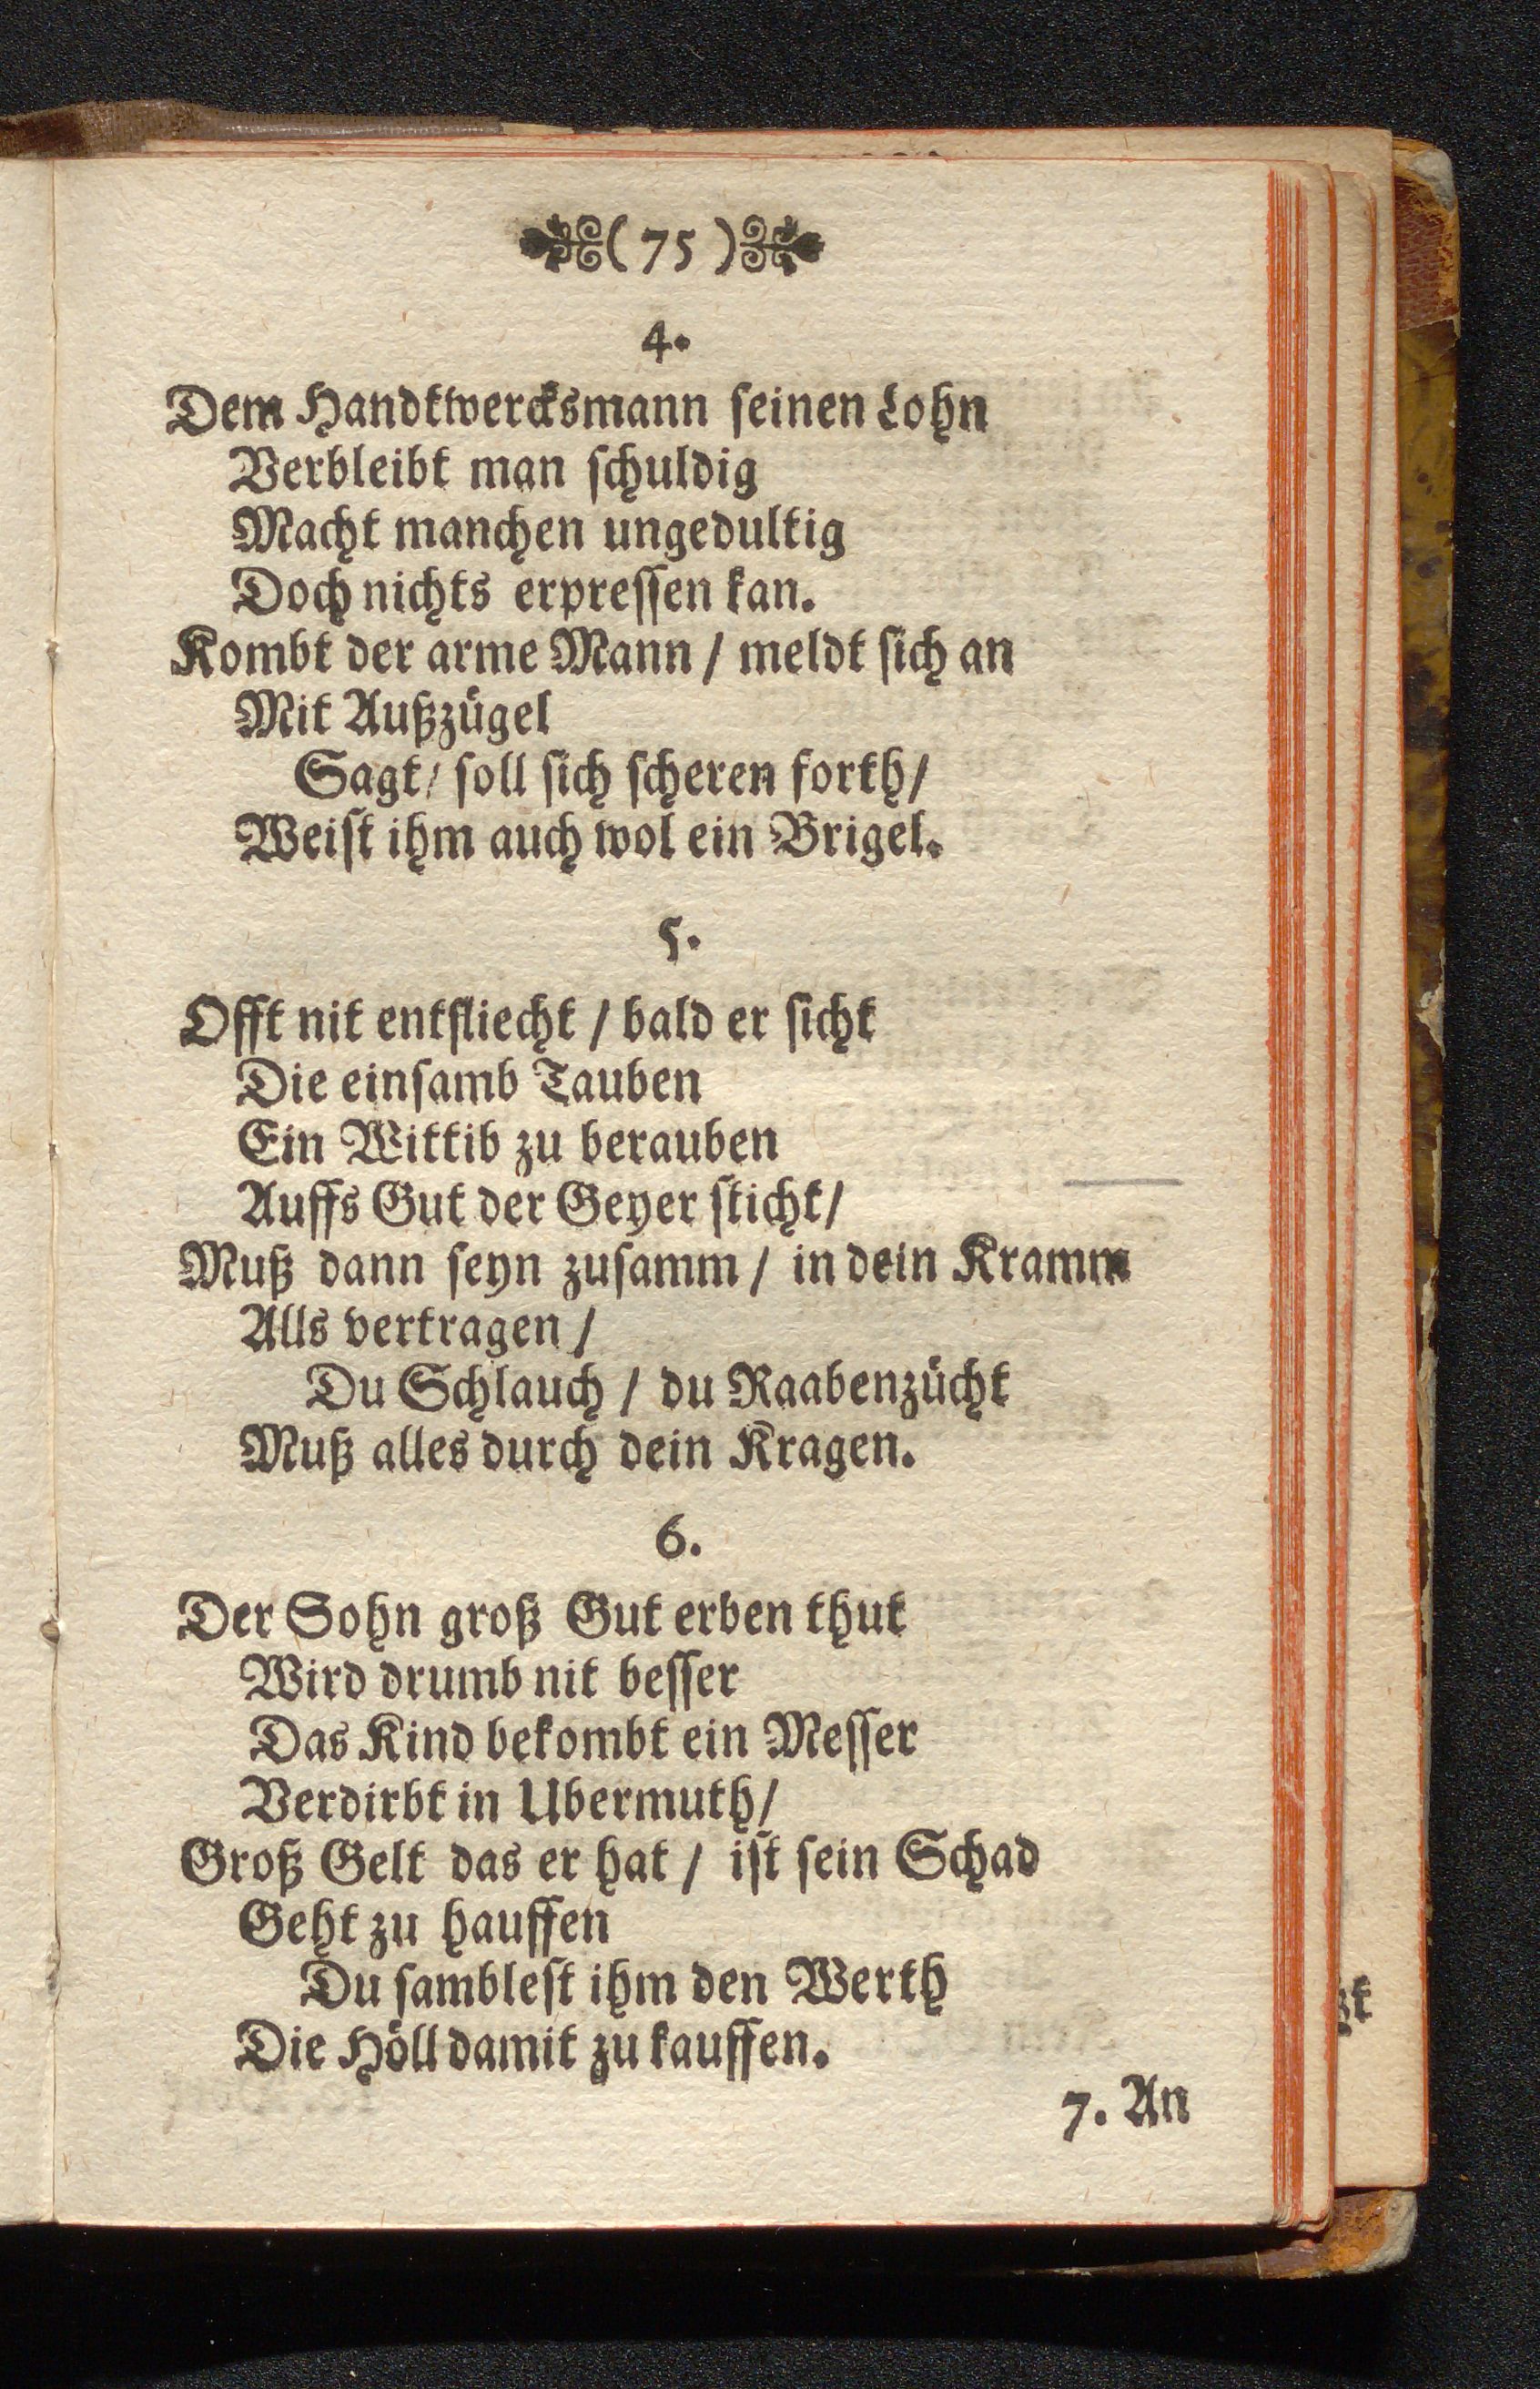 ( 75 )
4.
Dem Handtwercksmann seinen Lohn
Verbleibt man schuldig
Macht manchen ungedultig
Doch nichts erpressen kan.
Kombt der arme Mann / meldt sich an
Mit Außzügel
Sagt / soll sich scheren forth /
Weist ihm auch wol ein Brigel.
5.
Offt nit entfliecht / bald er sicht
Die einsamb Tauben
Ein Wittib zu berauben
Auffs Gut der Geyer sticht /
Muß dann seyn zusamm / in dein Kramm
Alls vertragen /
Du Schlauch / du Raabenzücht
Muß alles durch dein Kragen.
6.
Der Sohn groß Gut erben thut
Wird drumb nit besser
Das Kind bekombt ein Messer
Verdirbt in Ubermuth /
Groß Gelt das er hat / ist sein Schad
Geht zu hauffen
Du samblest ihm den Werth
Die Höll damit zu kauffen.
7. An